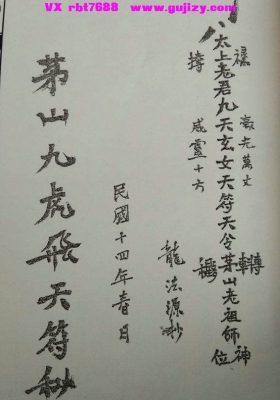 VX rbt7688 www.gujizy.com
祿
毫光萬丈
太上老君九天玄女天符天令茅山老祖師神位
威靈十方
龍法源抄
民國十四年春月
茅山九虎飛天符秘